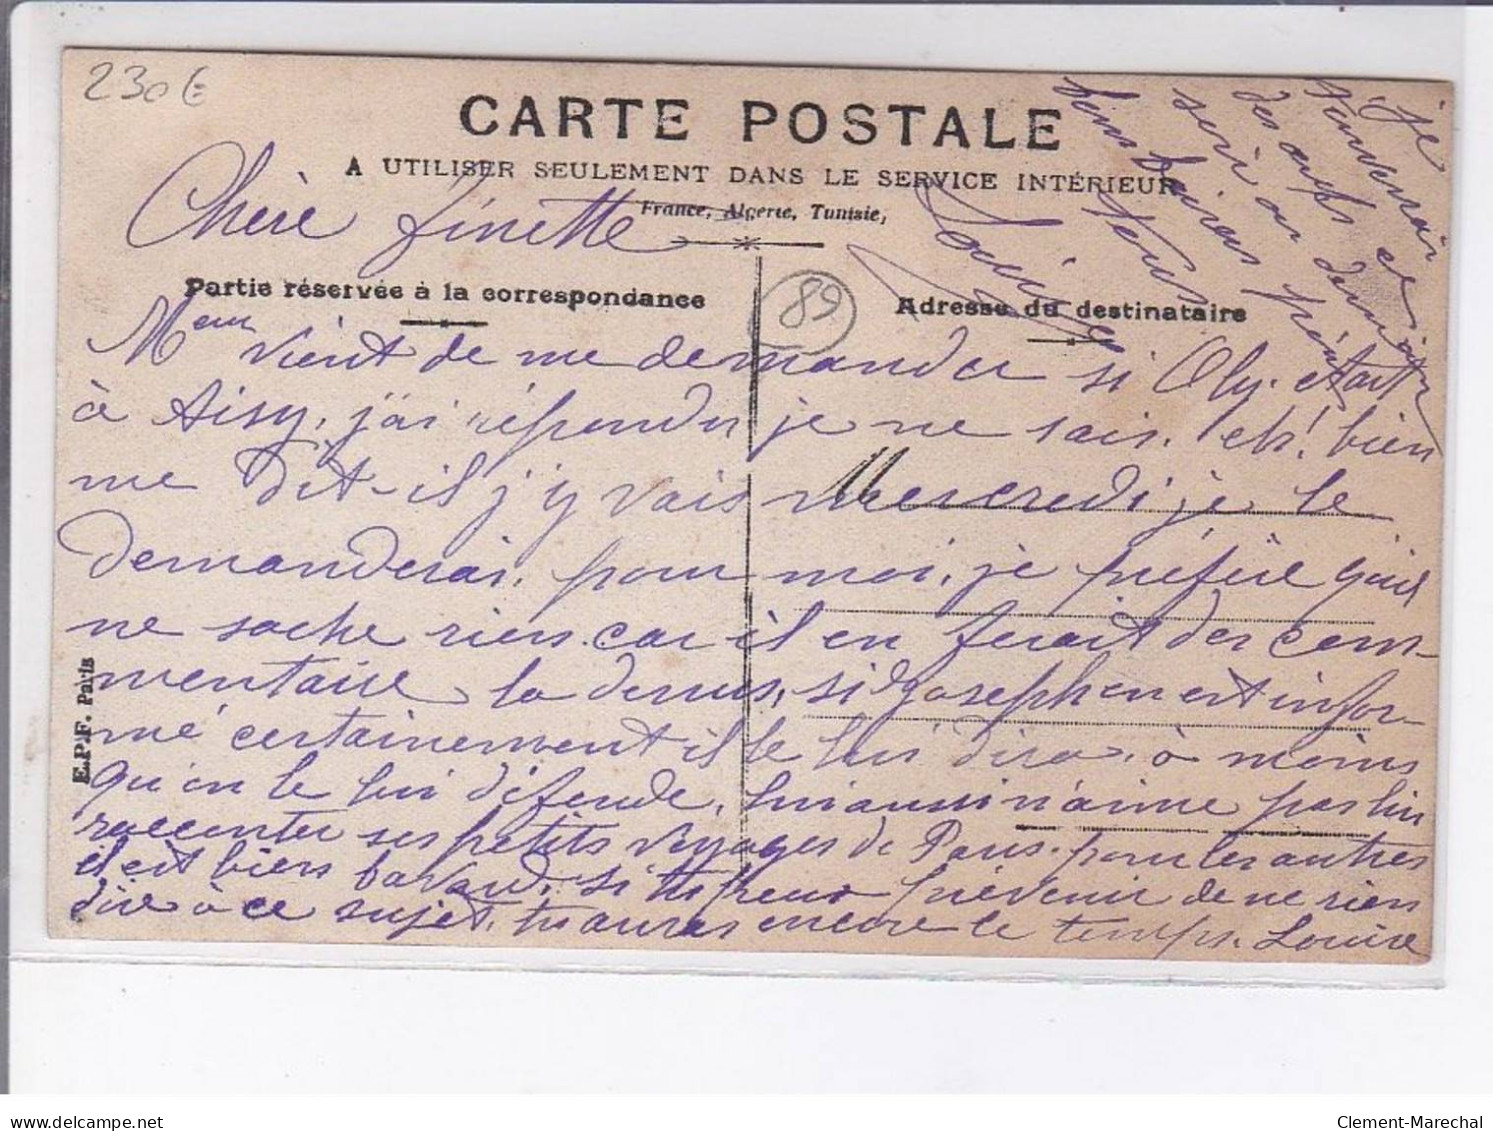 230€
CARTE POSTALE
A UTILISER SEULEMENT DANS LE SERVICE INTÉRIEUR
France, Algerie, Tunisie,
Chère Finette
Partie réservée à la correspondance
89
Adresse du destinataire
Meur vient de me demander si Oly. était
à Aisy, j'ai répondu je ne sais. eh! bien
me dit-il j'y vais Mercredi je le
demanderai, pour moi, je préfère qu'il
ne sache rien car il en ferait des com-
mentaire la dessus, si Joseph en est infor-
mé certainement il le lui dira, à moins
qu'on le lui défende, lui aussi n'aime pas lui
racconter ses petits voyages de Paris. pour les autres
il est bien bavard, si tu peux prévenir de ne rien
dire à ce sujet, tu auras encore le temps. Louise
E.P.F. Paris
Je
t'enverrai
des œufs ce
soir ou demain
bons baisers
Louise
Clement-Marechal
www.delcampe.net